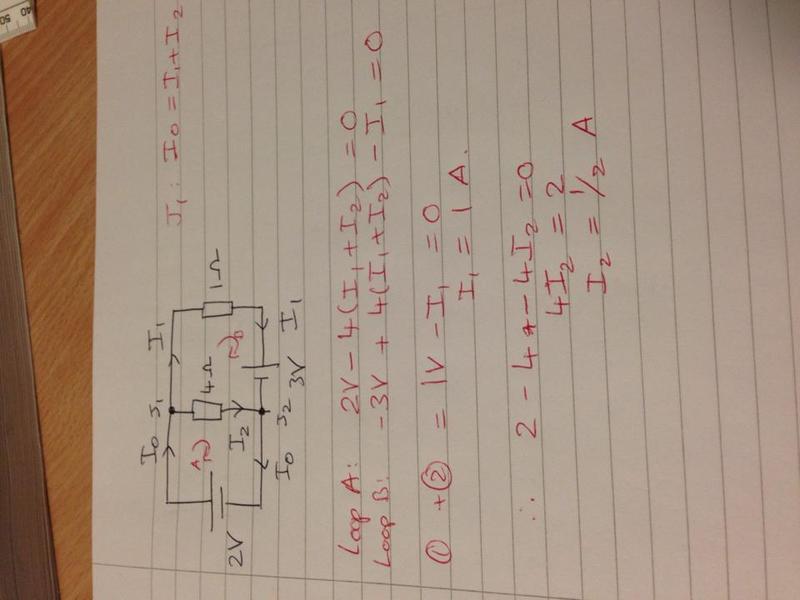 50 40
J₁: I₀ = I₁ + I₂
I₀ J₁ I₁
A 4Ω B 1Ω
2V I₂
I₀ J₂ 3V I₁
Loop A: 2V - 4(I₁ + I₂) = 0
Loop B: -3V + 4(I₁ + I₂) - I₁ = 0
① + ② = 1V - I₁ = 0
I₁ = 1 A.
∴ 2 - 4 - 4I₂ = 0
4I₂ = 2
I₂ = 1/2 A